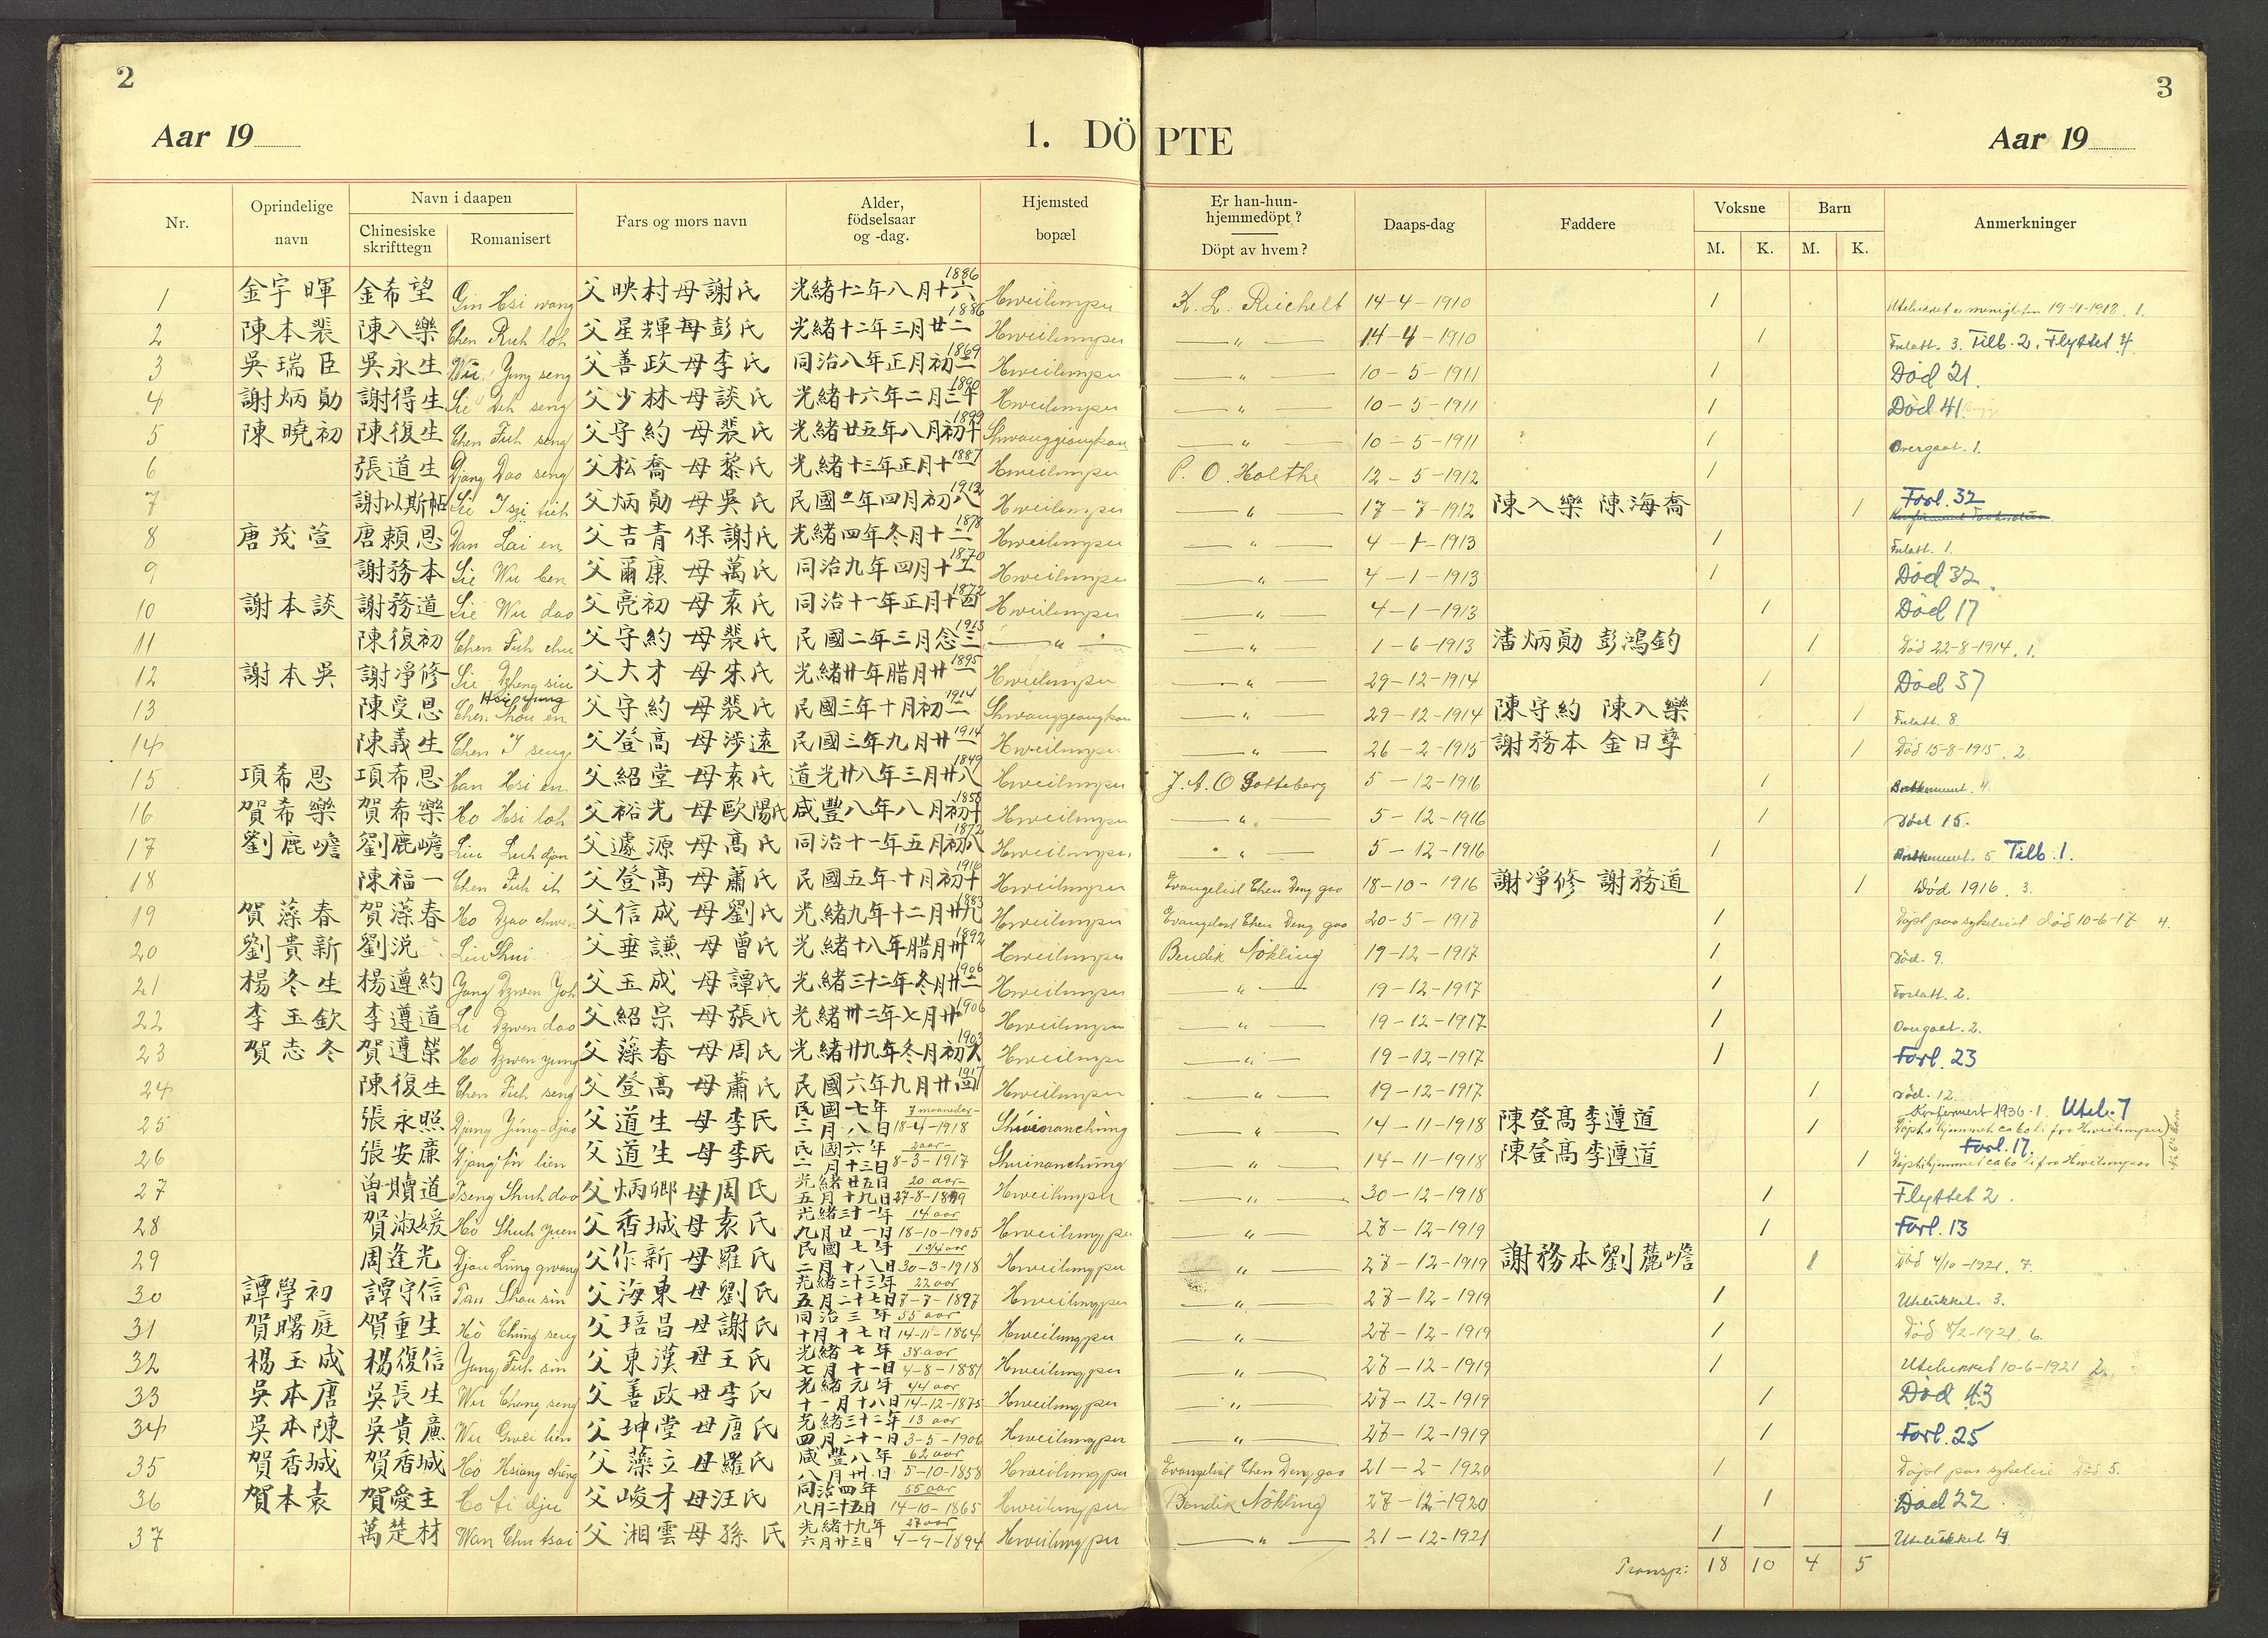 2
3
Aar 19
1. DÖPTE
Aar 19
Nr. | Oprindelige navn | Navn i daapen | Chinesiske skrifttegn | Romanisert | Fars og mors navn | Alder, födselsaar og -dag. | Hjemsted bopæl | Er han-hun-hjemmedöpt? Döpt av hvem? | Daaps-dag | Faddere | Voksne M. K. | Barn M. K. | Anmerkninger
1 金宇暉 金希望 Gin Hsi wang 父映村母謝氏 光緒十二年八月十六 1886 Hweilungpu K. L. Reichelt 14-4-1910 1 19-11-1918. 1.
2 陳本裴 陳入樂 Chen Ruh loh 父星輝母彭氏 光緒十二年三月廿二 1886 Hweilungpu —„— 14-4-1910 1 Innlatt. 3. Tilb. 2. Flyttet 4
3 吳瑞臣 吳永生 Wu Yung seng 父善政母李氏 同治八年正月初二 1869 Hweilungpu —„— 10-5-1911 1 Död 21.
4 謝炳勛 謝得生 Sie Deh seng 父少林母談氏 光緒十六年二月三十 1890 Hweilungpu —„— 10-5-1911 1 Död 41.
5 陳曉初 陳復生 Chen Fuh seng 父守約母裴氏 光緒廿五年八月初十 1899 —„— 10-5-1911 1 Overgaat. 1.
6 張道生 Djang Dao seng 父松喬母黎氏 光緒十三年正月十一 1887 Hweilungpu P. O. Holthe 12-5-1912 1
7 謝以斯帖 Sie I szi tieh 父炳勛母吳氏 民國年四月初八 1912 Hweilungpu —„— 17-7-1912 陳入樂 陳海喬 1 Forl. 32
8 唐茂萱 唐賴恩 Dan Lai en 父吉青保謝氏 光緒四年冬月十二 1878 Hweilungpu —„— 4-1-1913 1 1.
9 謝務本 Sie Wu ben 父爾康母萬氏 同治九年四月十五 1870 Hweilungpu —„— 4-1-1913 1 Död 32.
10 謝本談 謝務道 Sie Wu dao 父亮初母袁氏 同治十一年正月十四 1872 Hweilungpu —„— 4-1-1913 1 Död 17
11 陳復初 Chen Fuh chu 父守約母裴氏 民國二年三月念三 1913 —„— —„— 1-6-1913 潘炳勛 彭鴻鈞 1 Död 22-8-1914. 1.
12 謝本吳 謝淨修 Sie Dzheng siu 父大才母朱氏 光緒廿年腊月廿一 1895 Hweilungpu —„— 29-12-1914 1 Död 37
13 陳受恩 Chen Shou en 父守約母裴氏 民國三年十月初二 1914 —„— 29-12-1914 陳守約 陳入樂 1 8.
14 陳義生 Chen I seng 父登高母涉遠 民國三年九月廿一 1914 Hweilungpu —„— 26-2-1915 謝務本 金日孳 1 Död 15-8-1915. 2.
15 項希恩 項希恩 Han Hsi en 父紹堂母袁氏 道光廿八年三月廿八 1849 Hweilungpu J. A. O. Gotteberg 5-12-1916 1 4.
16 賀希樂 賀希樂 Ho Hsi loh 父裕光母歐陽氏 咸豐八年八月初十 1858 Hweilungpu —„— 5-12-1916 1 Död 15.
17 劉鹿嶦 劉鹿嶦 Liu Luh djan 父遽源母高氏 同治十一年五月初八 1872 Hweilungpu —„— 5-12-1916 1 5 Tilb. 1.
18 陳福一 Chen Fuh ih 父登高母蕭氏 民國五年十月初十 1916 Hweilungpu Evangelist Chen Deng gao 18-10-1916 謝淨修 謝務道 1 Död 1916. 3.
19 賀藻春 賀藻春 Ho Dzao chwen 父信成母劉氏 光緒九年十二月廿九 1883 Hweilungpu Evangelist Chen Deng gao 20-5-1917 1 Döpt paa sykeleiet död 10-6-17 4.
20 劉貴新 劉說 Liu Shui 父垂謙母曾氏 光緒十八年腊月卅 1892 Hweilungpu Bendik Nökling 19-12-1917 1 Död. 9.
21 楊冬生 楊遵約 Yang Dzwen Yoh 父玉成母譚氏 光緒三十二年冬月廿二 1906 Hweilungpu —„— 19-12-1917 1 Forlatt. 2.
22 李玉欽 李遵道 Li Dzwen dao 父紹宗母張氏 光緒卅二年七月廿 1906 Hweilungpu —„— 19-12-1917 1 Overgaat. 2.
23 賀志冬 賀遵榮 Ho Dzwen yung 父藻春母周氏 光緒廿九年冬月初六 1903 Hweilungpu —„— 19-12-1917 1 Forl. 23
24 陳復生 Chen Fuh seng 父登高母蕭氏 民國六年九月廿四 1917 Hweilungpu —„— 19-12-1917 1 Död. 12.
25 張永照 Djang Yung-djao 父道生母李氏 民國七年三月八日 7 maaneder 18-4-1918 Shuinanchung —„— 14-11-1918 陳登高李遵道 1 Konfirmert 1936.1. Utel. 7 Döpt i hjemmet ca 60 li fra Hweilungpu
26 張安廉 Djang An lien 父道生母李氏 民國六年二月十三日 2 aar 8-3-1917 Shuinanchung —„— 14-11-1918 陳登高李遵道 1 Forl. 17 Döpt i hjemmet ca 60 li fra Hweilungpu
27 曾贖道 Tseng Shuh dao 父炳卿母周氏 光緒廿五日五月十九日 20 aar 27-8-1899 Hweilungpu —„— 30-12-1918 1 Flyttet 2.
28 賀淑媛 Ho Shuh Yuen 父香城母袁氏 光緒三十一年九月廿一日 14 aar 18-10-1905 Hweilungpu —„— 27-12-1919 1 Forl. 13
29 周逢光 Djou Lung gwang 父作新母羅氏 民國七年二月十八日 1 3/4 aar 30-3-1918 Hweilungpu —„— 27-12-1919 謝務本劉麓嶦 1 Död 4/10-1921. 7.
30 譚學初 譚守信 Tan Shou sin 父海東母劉氏 光緒二十三年五月二十七日 22 aar 7-7-1897 Hweilungpu —„— 27-12-1919 1 Utelukket. 3.
31 賀曙庭 賀重生 Ho Chung seng 父琣昌母謝氏 同治三年十月十七日 55 aar 14-11-1864 Hweilungpu —„— 27-12-1919 1 Död 8/2-1921. 6.
32 楊玉成 楊復信 Yang Fuh sin 父東漢母王氏 光緒七年七月十一日 38 aar 4-8-1881 Hweilungpu —„— 27-12-1919 1 Utelukket 10-6-1921 2.
33 吳本唐 吳長生 Wu Chang seng 父善政母李氏 光緒元年十一月十八日 44 aar 14-12-1875 Hweilungpu —„— 27-12-1919 1 Död 43
34 吳本陳 吳貴廉 Wu Gwei lien 父坤堂母唐氏 光緒三十二年四月二十一日 13 aar 3-5-1906 Hweilungpu —„— 27-12-1919 1 Forl. 25
35 賀香城 賀香城 Ho Hsiang cheng 父藻立母羅氏 咸豐八年八月卅日 62 aar 5-10-1858 Hweilungpu Evangelist Chen Deng gao 21-2-1920 1 Döpt paa sykeleie Död 5.
36 賀本袁 賀愛主 Ho Ai dju 父峻才母汪氏 同治四年八月二十五日 55 aar 14-10-1865 Hweilungpu Bendik Nökling 27-12-1920 1 Död 22
37 萬楚材 Wan Chu tsai 父湘雲母孫氏 光緒十九年六月廿三日 27 aar 4-9-1894 Hweilungpu —„— 21-12-1921 1 Utelukket 4
Transp: 18 10 4 5